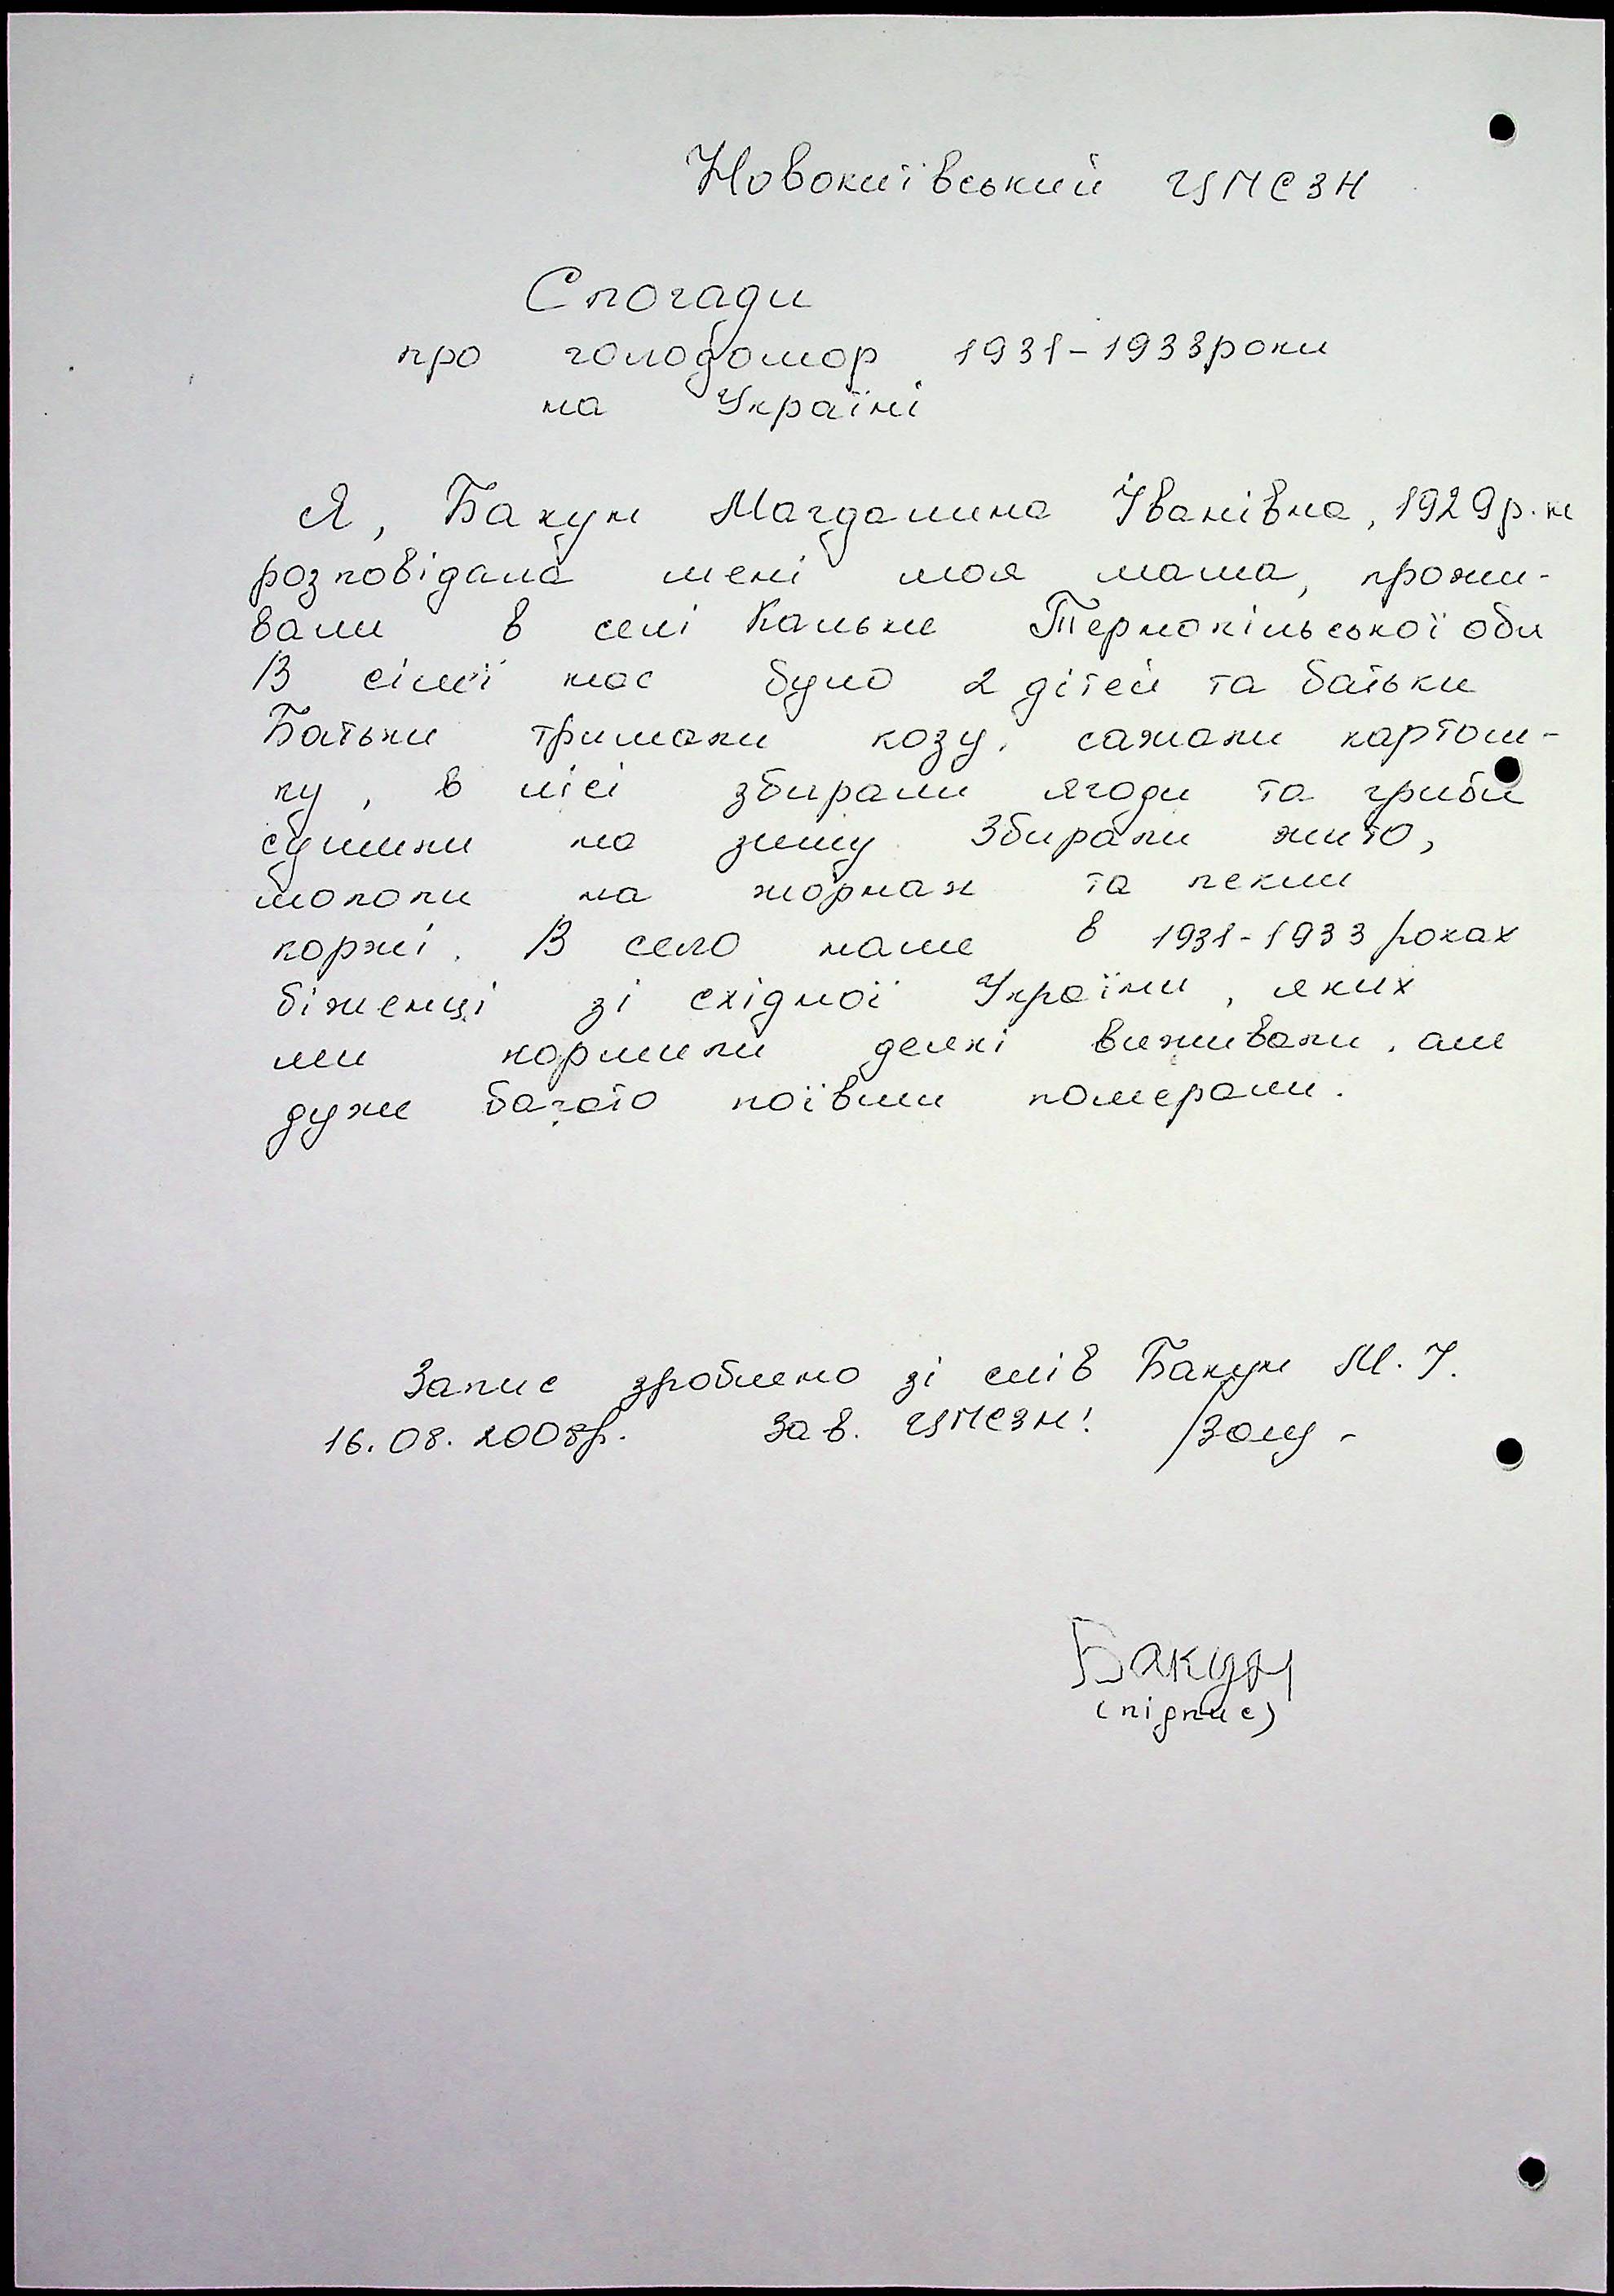 Новокиївський ЦМСЗН
Спогади
про голодомор 1931-1933роки
на Україні
Я, Бакун Магдалина Іванівна, 1929р.н
розповідала мені моя мама, прожи-
вали в селі Кальне Тернопільської обл
В сім'ї нас було 2 дітей та батьки
Батьки тримали козу, сажали картош-
ку, в лісі збирали ягоди та гриби
сушили на зиму. Збирали жито,
мололи на жорнах та пекли
коржі. В село наше в 1931-1933 роках
біженці зі східної України, яких
ми кормили деякі виживали, але
дуже багато поївши померали.
Запис зроблено зі слів Бакун М. І.
16.08.2008р. Зав. ЦМСЗН!
Бакун
(підпис)